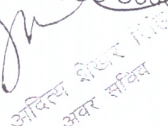 आदित्य शेखर
अवर सचिव